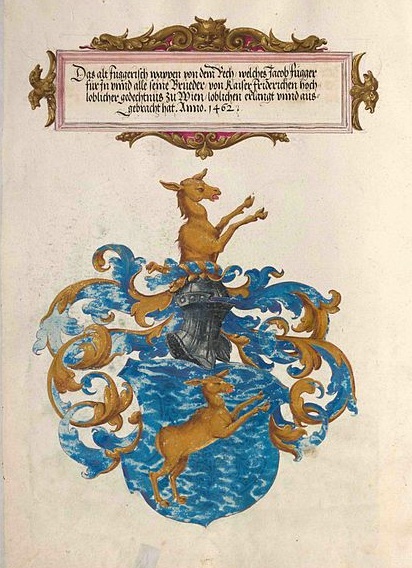 Das alt fuggerisch wappen von dem Rech, welches Jacob fugger
fur in vnnd alle seine Brueder von Kaiser friderichen hoch
loblicher gedechtnus zu Wien loblichen erlangt vnnd aus-
gebracht hat. Anno. 1462.